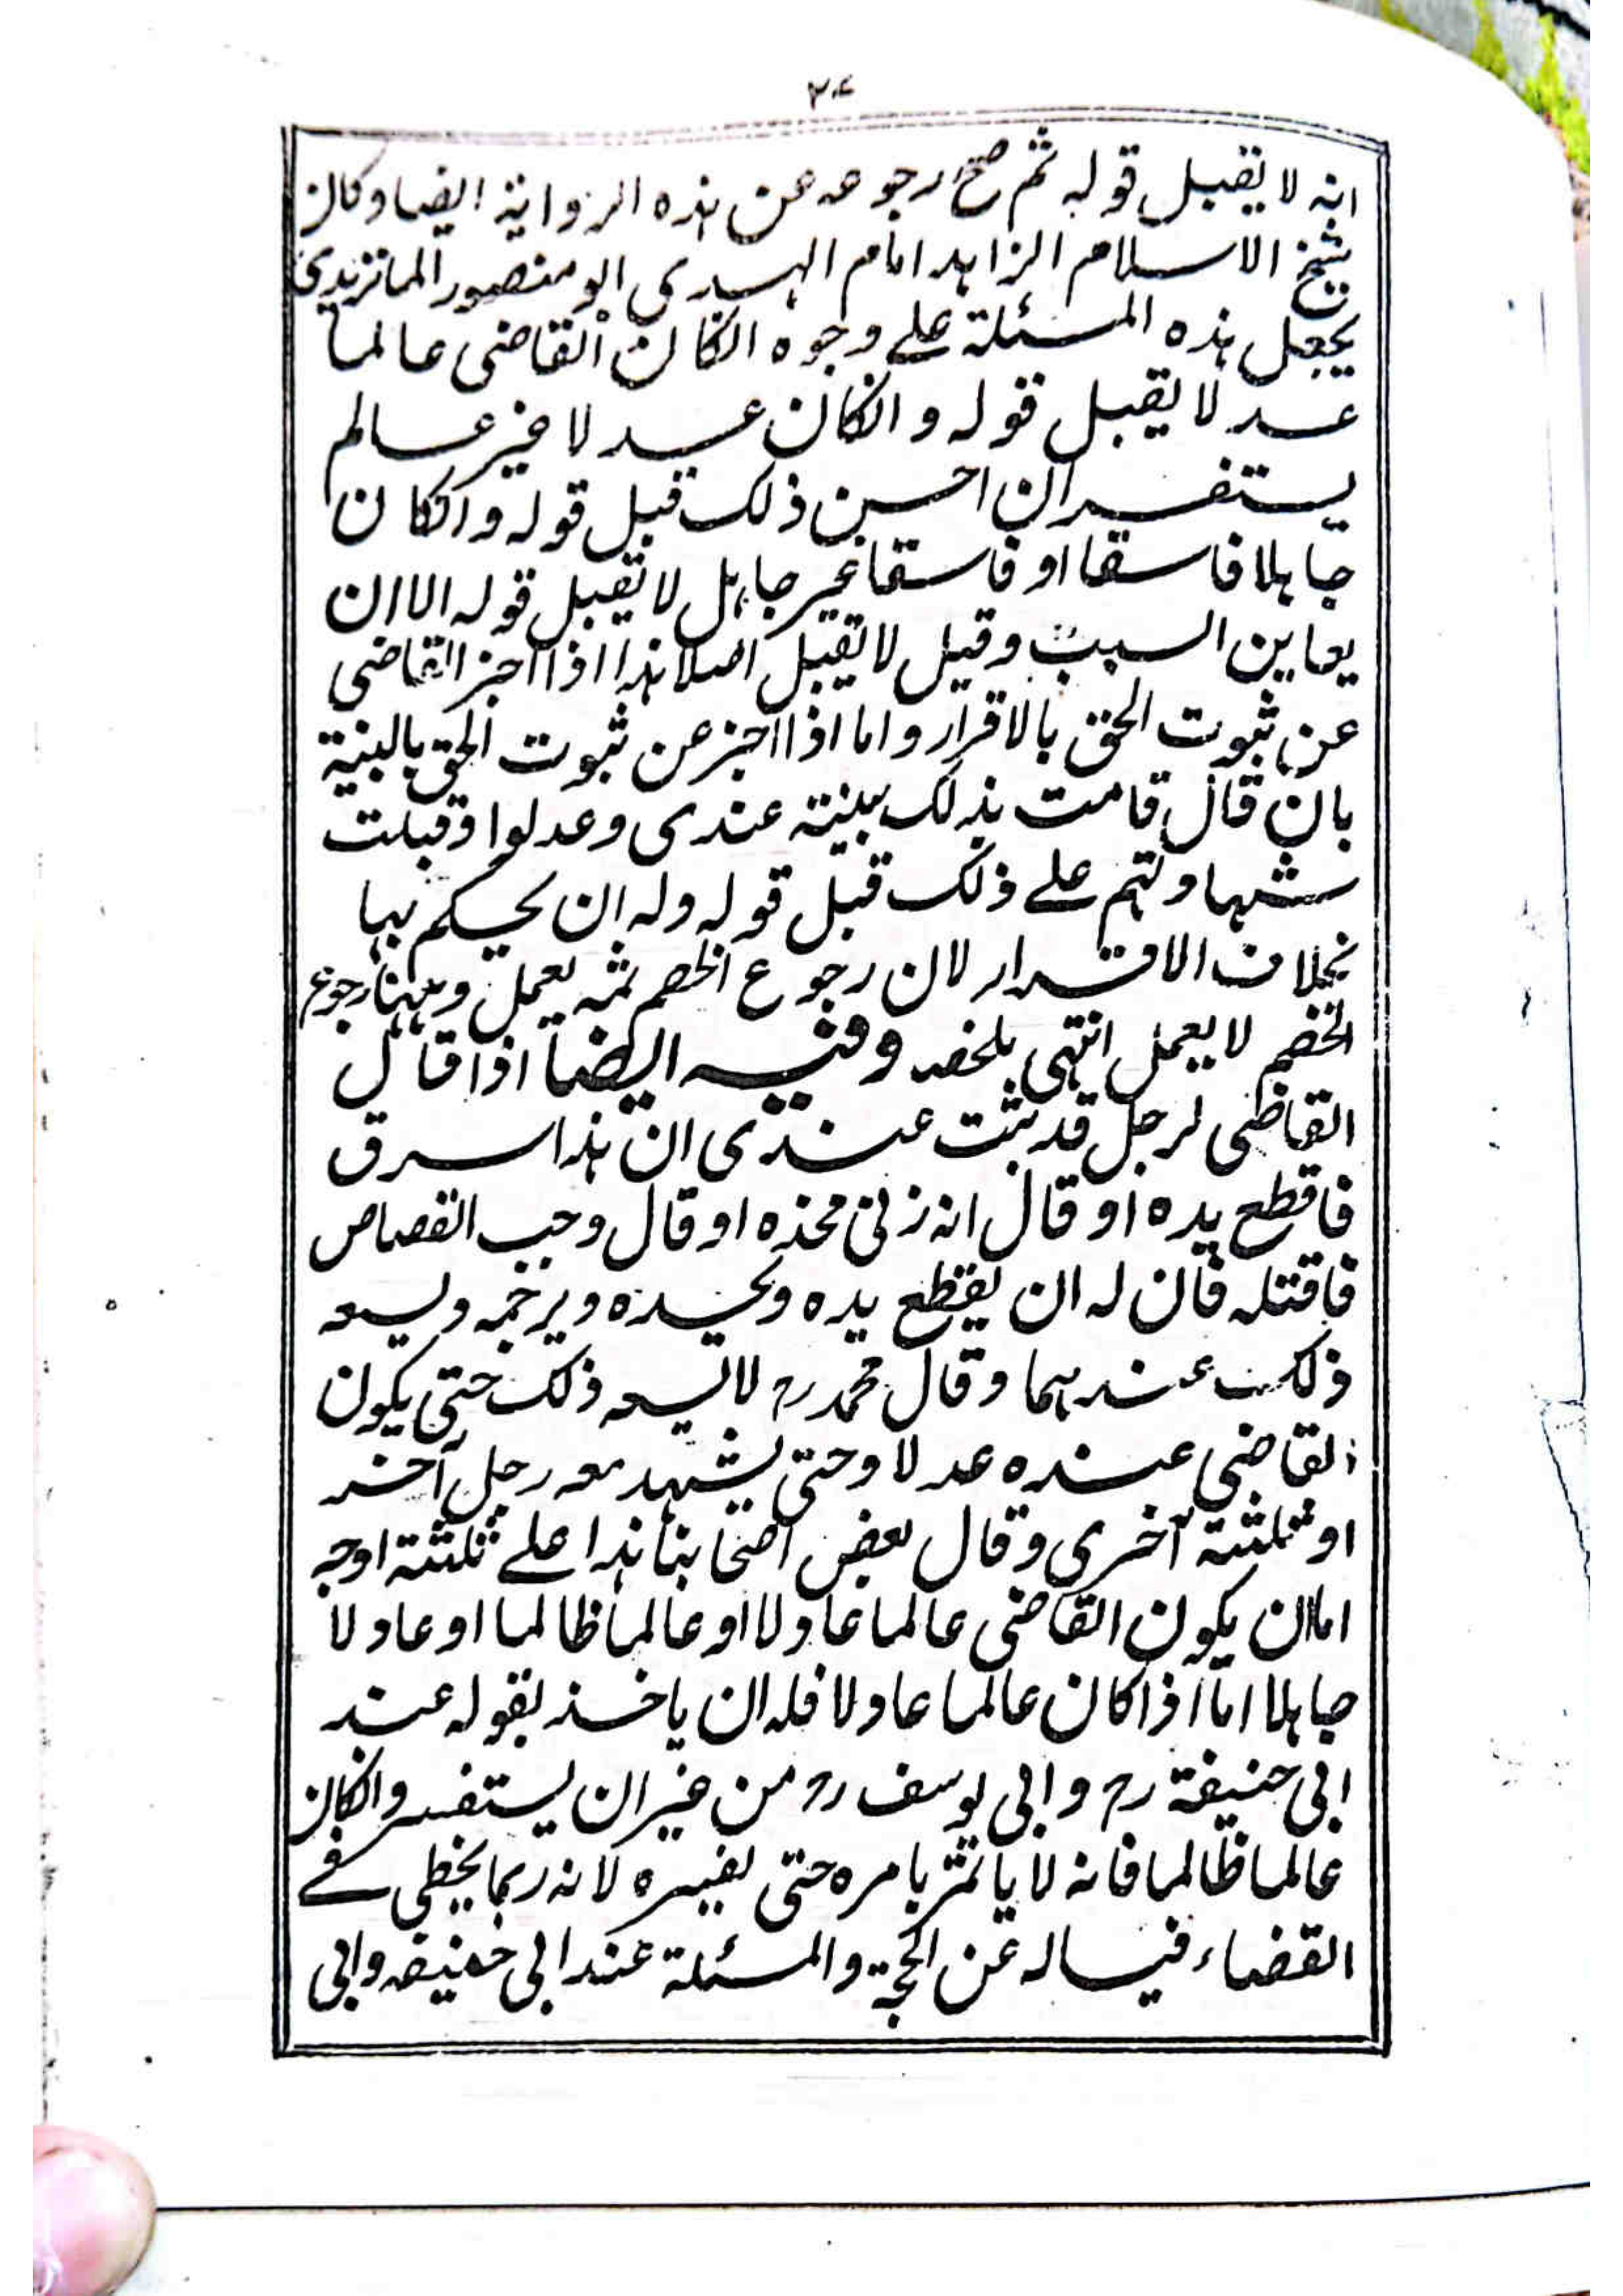 انه لا يقبل قوله ثم صح رجوعه عن هذه الرواية ايضا وكان
شيخ الاسلام الزاهد امام الهدى ابو منصور الماتريدى
يجعل هذه المسئلة على وجوه انكان القاضى عالما
عدلا يقبل قوله وانكان عدلا غير عالم
يستفسر ان احسن ذلك قبل قوله وانكان
جاهلا فاسقا او فاسقا غير جاهل لا يقبل قوله الا ان
يعاين السبب وقيل لا يقبل اصلا هذا اذا اخبر القاضى
عن ثبوت الحق بالاقرار واما اذا اخبر عن ثبوت الحق بالبينة
بان قال قامت بذلك بينة عندى وعدلوا وقبلت
شهادتهم على ذلك قبل قوله وله ان يحكم بها
بخلاف الاقرار لان رجوع الخصم ثمه يعمل وههنا رجوع
الخصم لا يعمل انتهى ملخصه وفيه ايضا اذا قال
القاضى لرجل قد ثبت عندى ان هذا سرق
فاقطع يده او قال انه زنى فحده او قال وجب القصاص
فاقتله فان له ان يقطع يده ويحده ويرجمه ويسعه
ذلك عندهما وقال محمد رح لا يسعه ذلك حتى يكون
القاضى عنده عدلا وحتى يشهد معه رجل آخر
او ثلثة آخرى وقال بعض اصحابنا هذا على ثلثة اوجه
اما ان يكون القاضى عالما عادلا او عالما ظالما او عادلا
جاهلا اما اذا كان عالما عادلا فله ان ياخذ بقوله عند
ابى حنيفة رح وابى يوسف رح من غير ان يستفسر وانكان
عالما ظالما فانه لا ياتمر بامره حتى يفسره لانه ربما يخطى فى
القضاء فيساله عن الحجة والمسئلة عند ابى حنيفه وابى